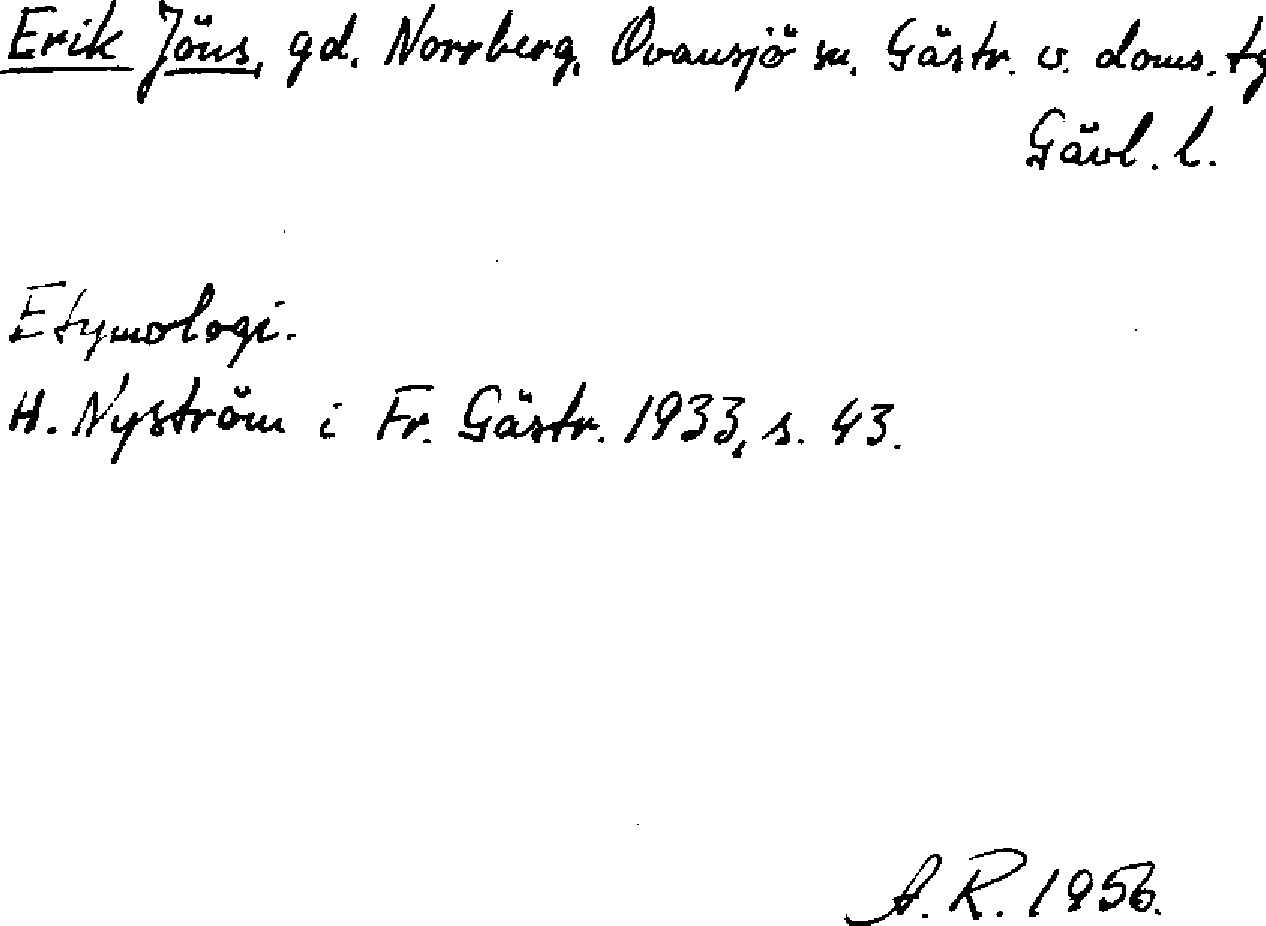 Erik Jöns, gd. Norrberg, Ovansjö sn. Gästr. v. doms. tg
Gävl. l.
Etymologi.
H. Nyström i Fr. Gästr. 1933, s. 43.
A. R. 1956.